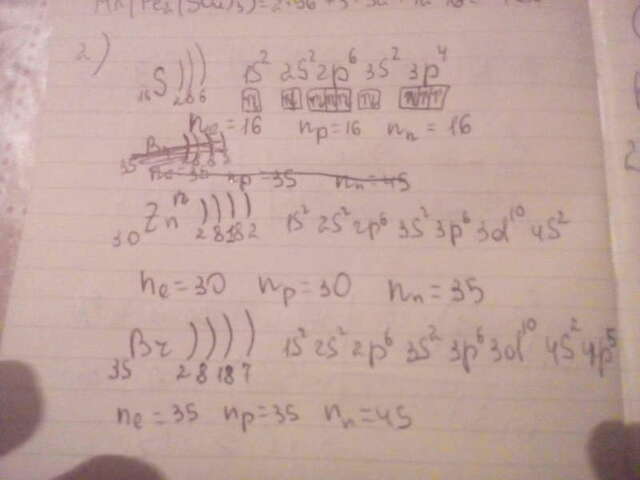 2)
16 S ))) 2 8 6 1S² 2S² 2p⁶ 3S² 3p⁴
nₑ=16 nₚ=16 nₙ=16
35 Br )))) 2 8 18 7
nₑ=35 nₚ=35 nₙ=45
30 Zn )))) 2 8 18 2 1S² 2S² 2p⁶ 3S² 3p⁶ 3d¹⁰ 4S²
nₑ=30 nₚ=30 nₙ=35
35 Br )))) 2 8 18 7 1S² 2S² 2p⁶ 3S² 3p⁶ 3d¹⁰ 4S² 4p⁵
nₑ=35 nₚ=35 nₙ=45